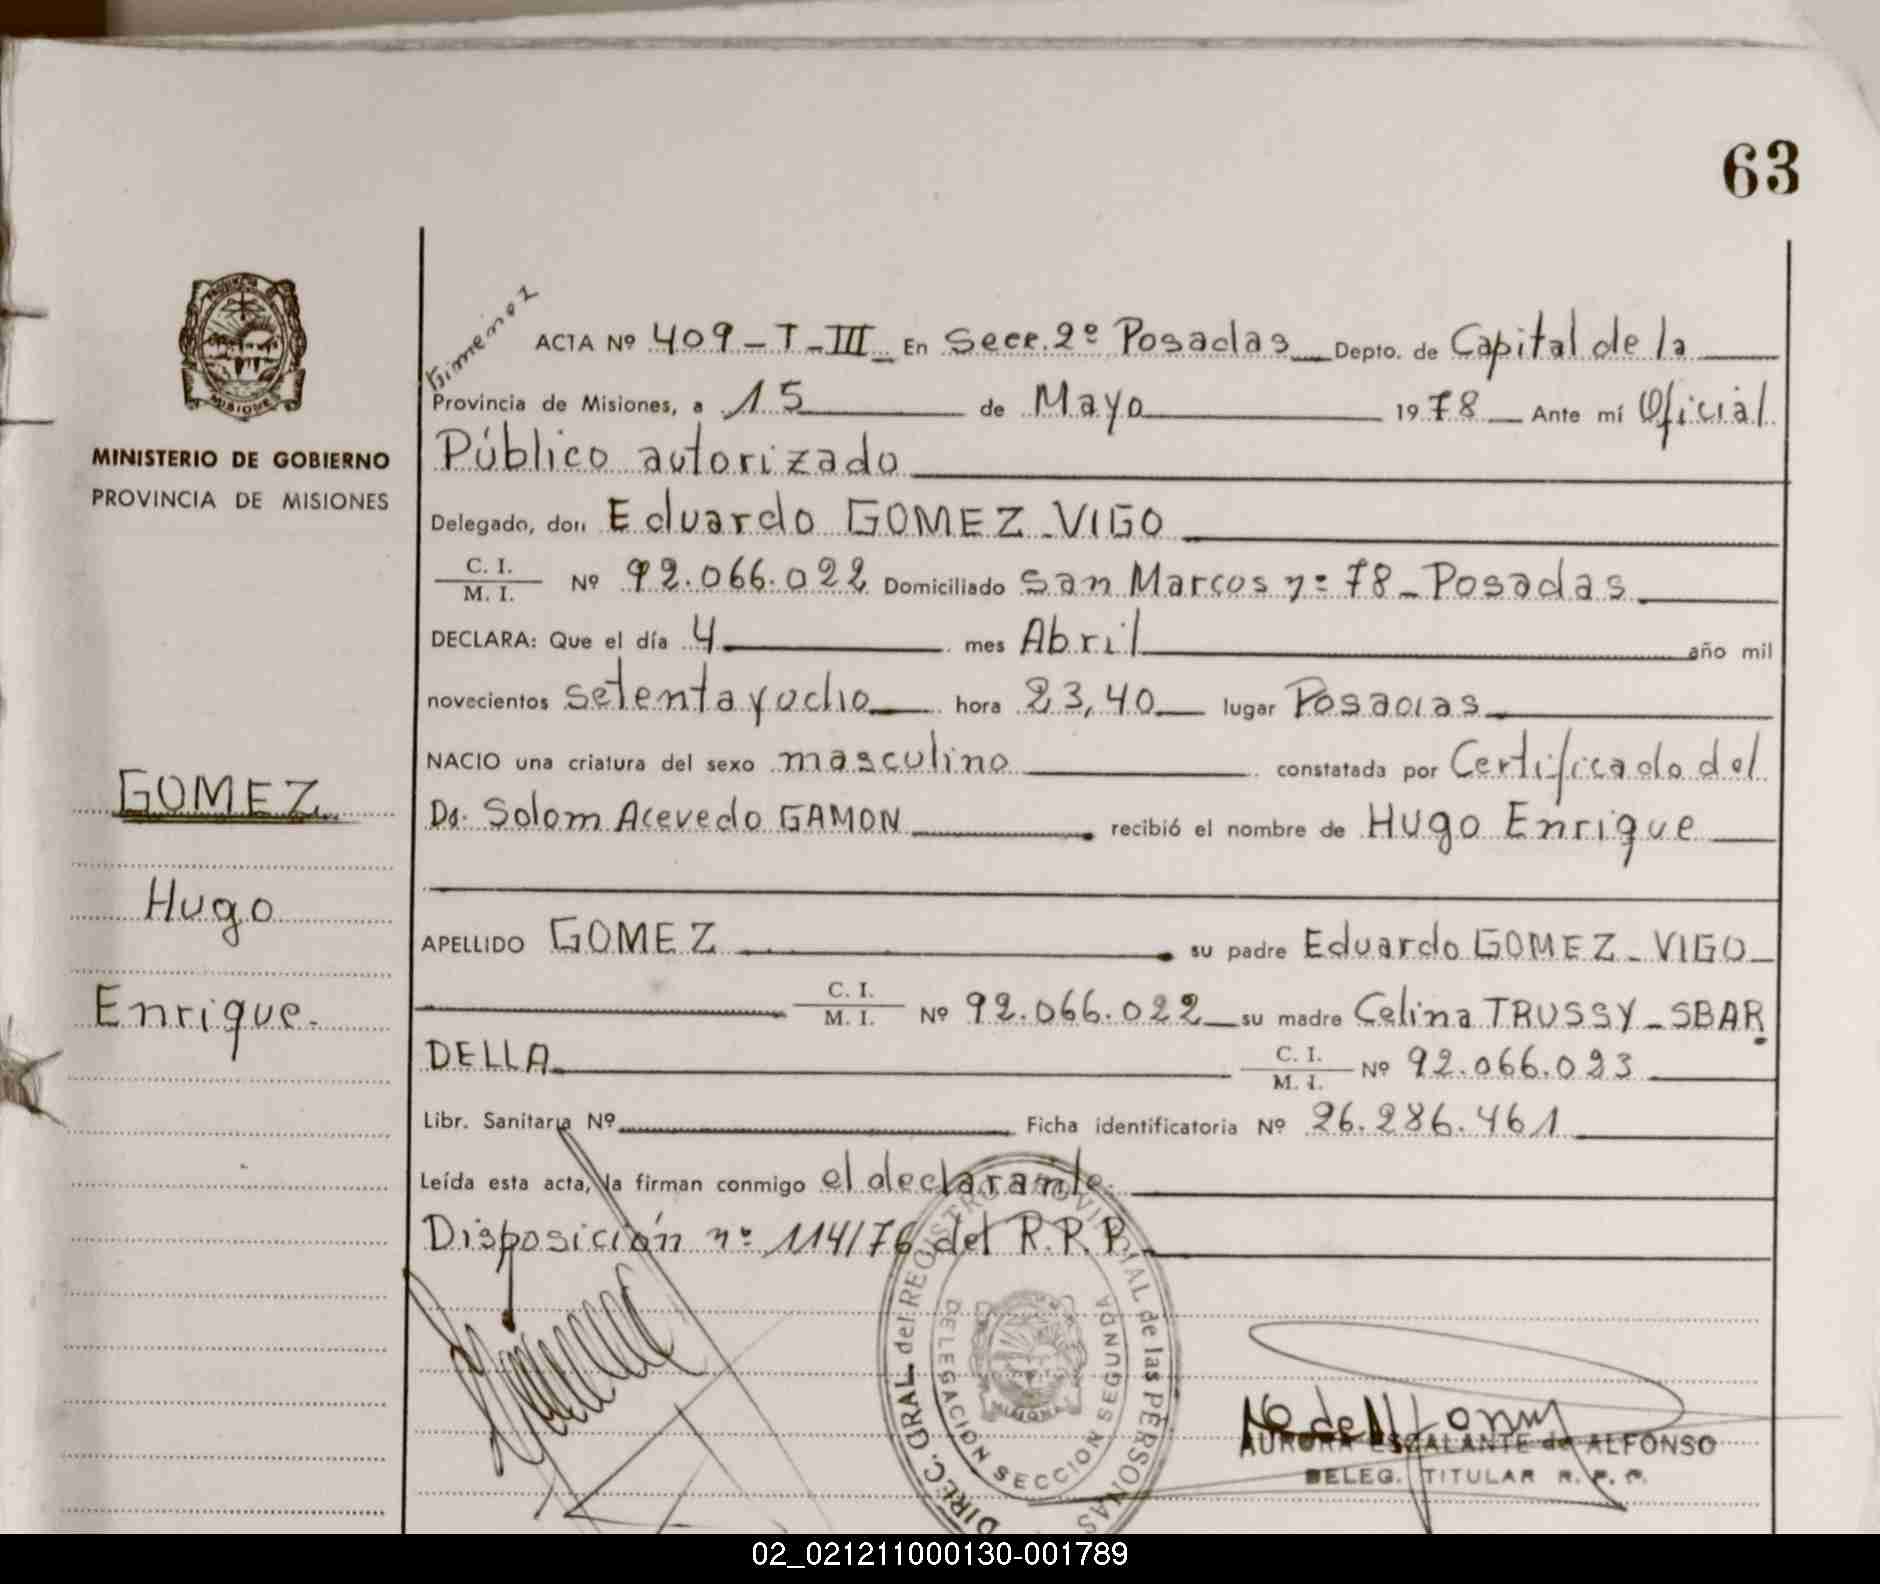 63
Gimenez
ACTA Nº 409-T-III En Secc. 2º Posadas Depto. de Capital de la
Provincia de Misiones, a 15 de Mayo 1978 Ante mí Oficial
Público autorizado
Delegado, don Eduardo GOMEZ-VIGO
C. I.
M. I. Nº 92.066.022 Domiciliado San Marcos nº 78-Posadas
DECLARA: Que el día 4 mes Abril año mil
novecientos setenta y ocho hora 23,40 lugar Posadas
NACIO una criatura del sexo masculino constatada por Certificado del
Dr. Solom Acevedo GAMON recibió el nombre de Hugo Enrique
APELLIDO GOMEZ su padre Eduardo GOMEZ-VIGO
C. I.
M. I. Nº 92.066.022 su madre Celina TRUSSY-SBAR
DELLA C. I.
M. I. Nº 92.066.023
Libr. Sanitaria Nº Ficha identificatoria Nº 26.286.461
Leída esta acta, la firman conmigo el declarante.
Disposición nº 114/76 del R.P.P.
MISIONES
MINISTERIO DE GOBIERNO
PROVINCIA DE MISIONES
GOMEZ
Hugo
Enrique.
DIREC. GRAL. del REGISTRO PROVINCIAL de las PERSONAS
DELEGACION SECCION SEGUNDA
AURORA ESCALANTE de ALFONSO
DELEG. TITULAR R. P. P.
02_021211000130-001789